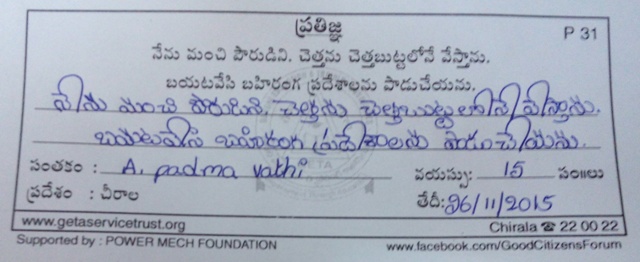 ప్రతిజ్ఞ
P 31
నేను మంచి పౌరుడిని. చెత్తను చెత్తబుట్టలోనే వేస్తాను.
బయటవేసి బహిరంగ ప్రదేశాలను పాడుచేయను.
నేను మంచి పౌరుడిని. చెత్తను చెత్తబుట్టలోనే వేస్తాను.
బయటవేసి బహిరంగ ప్రదేశాలను పాడుచేయను.
సంతకం : A. padma vathi వయస్సు: 15 సం॥లు
ప్రదేశం : చీరాల తేదీ: 26/11/2015
www.getaservicetrust.org Chirala ☎ 22 00 22
Supported by : POWER MECH FOUNDATION www.facebook.com/GoodCitizensForum